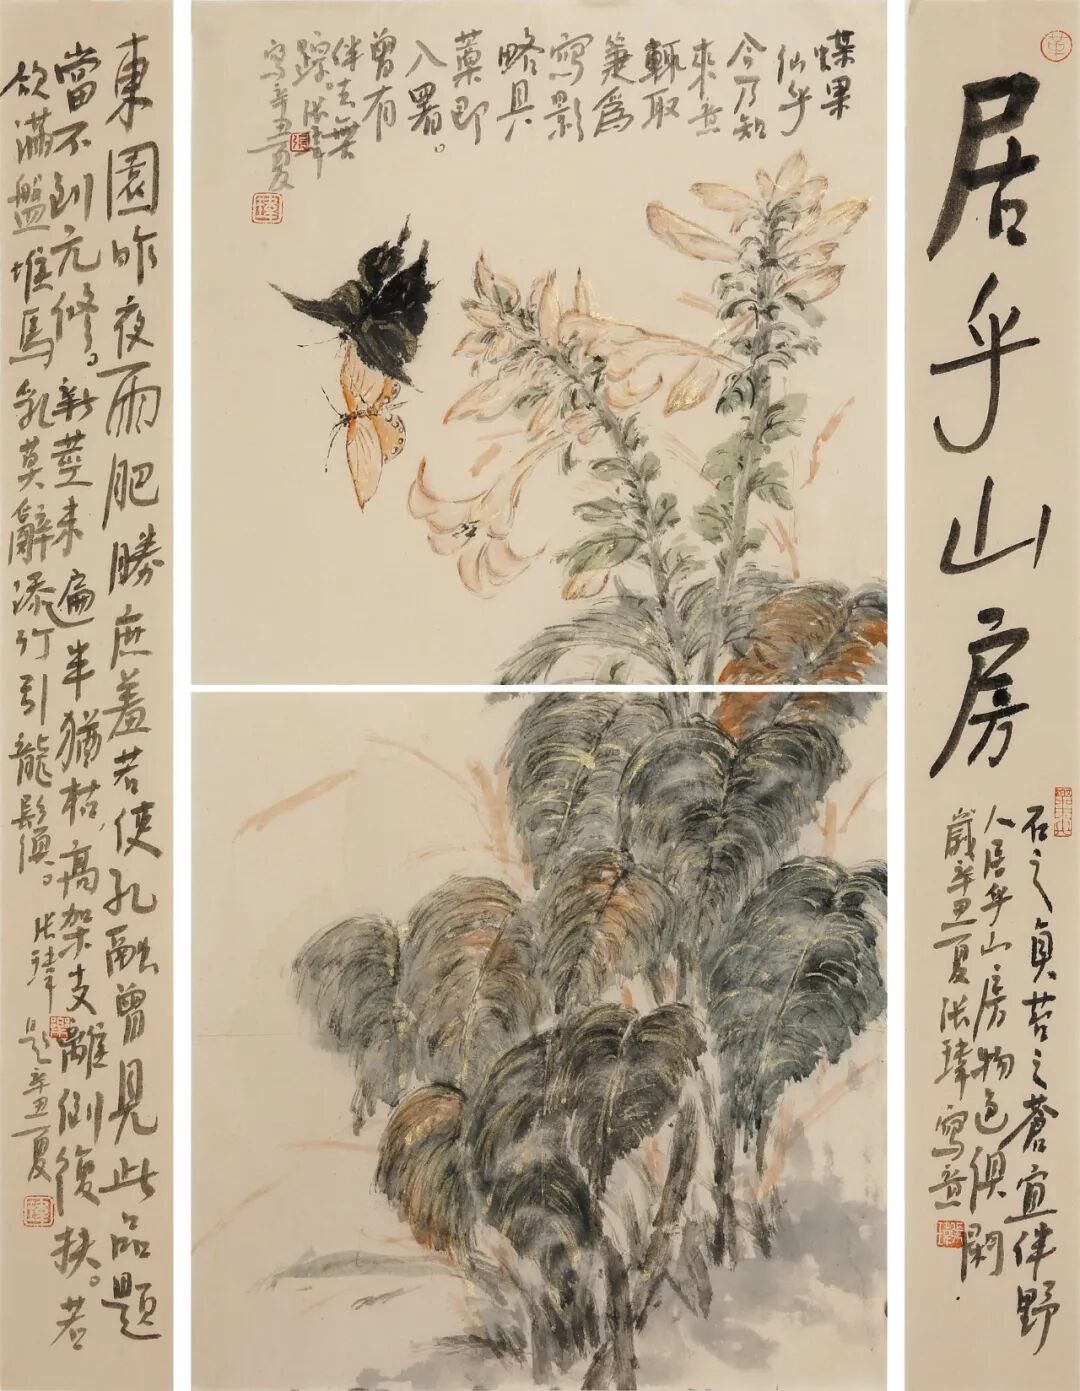 居乎山房
石之貞苔之蒼宜伴野
人居乎山房物色俱閑
歲辛丑夏張瑋寫意
蝶果
仙乎
今乃知
來意
輒取
箋為
寫影
略具
藁即
入署。
曾有
伴去無
蹤。張瑋
寫辛丑夏
東園昨夜雨肥勝庶羞若使孔融曾見此品題
當不到元修。新莖未遍半猶枯高架支離倒復扶。若
欲滿盤堆馬乳莫辭添竹引龍鬚。張瑋題辛丑夏